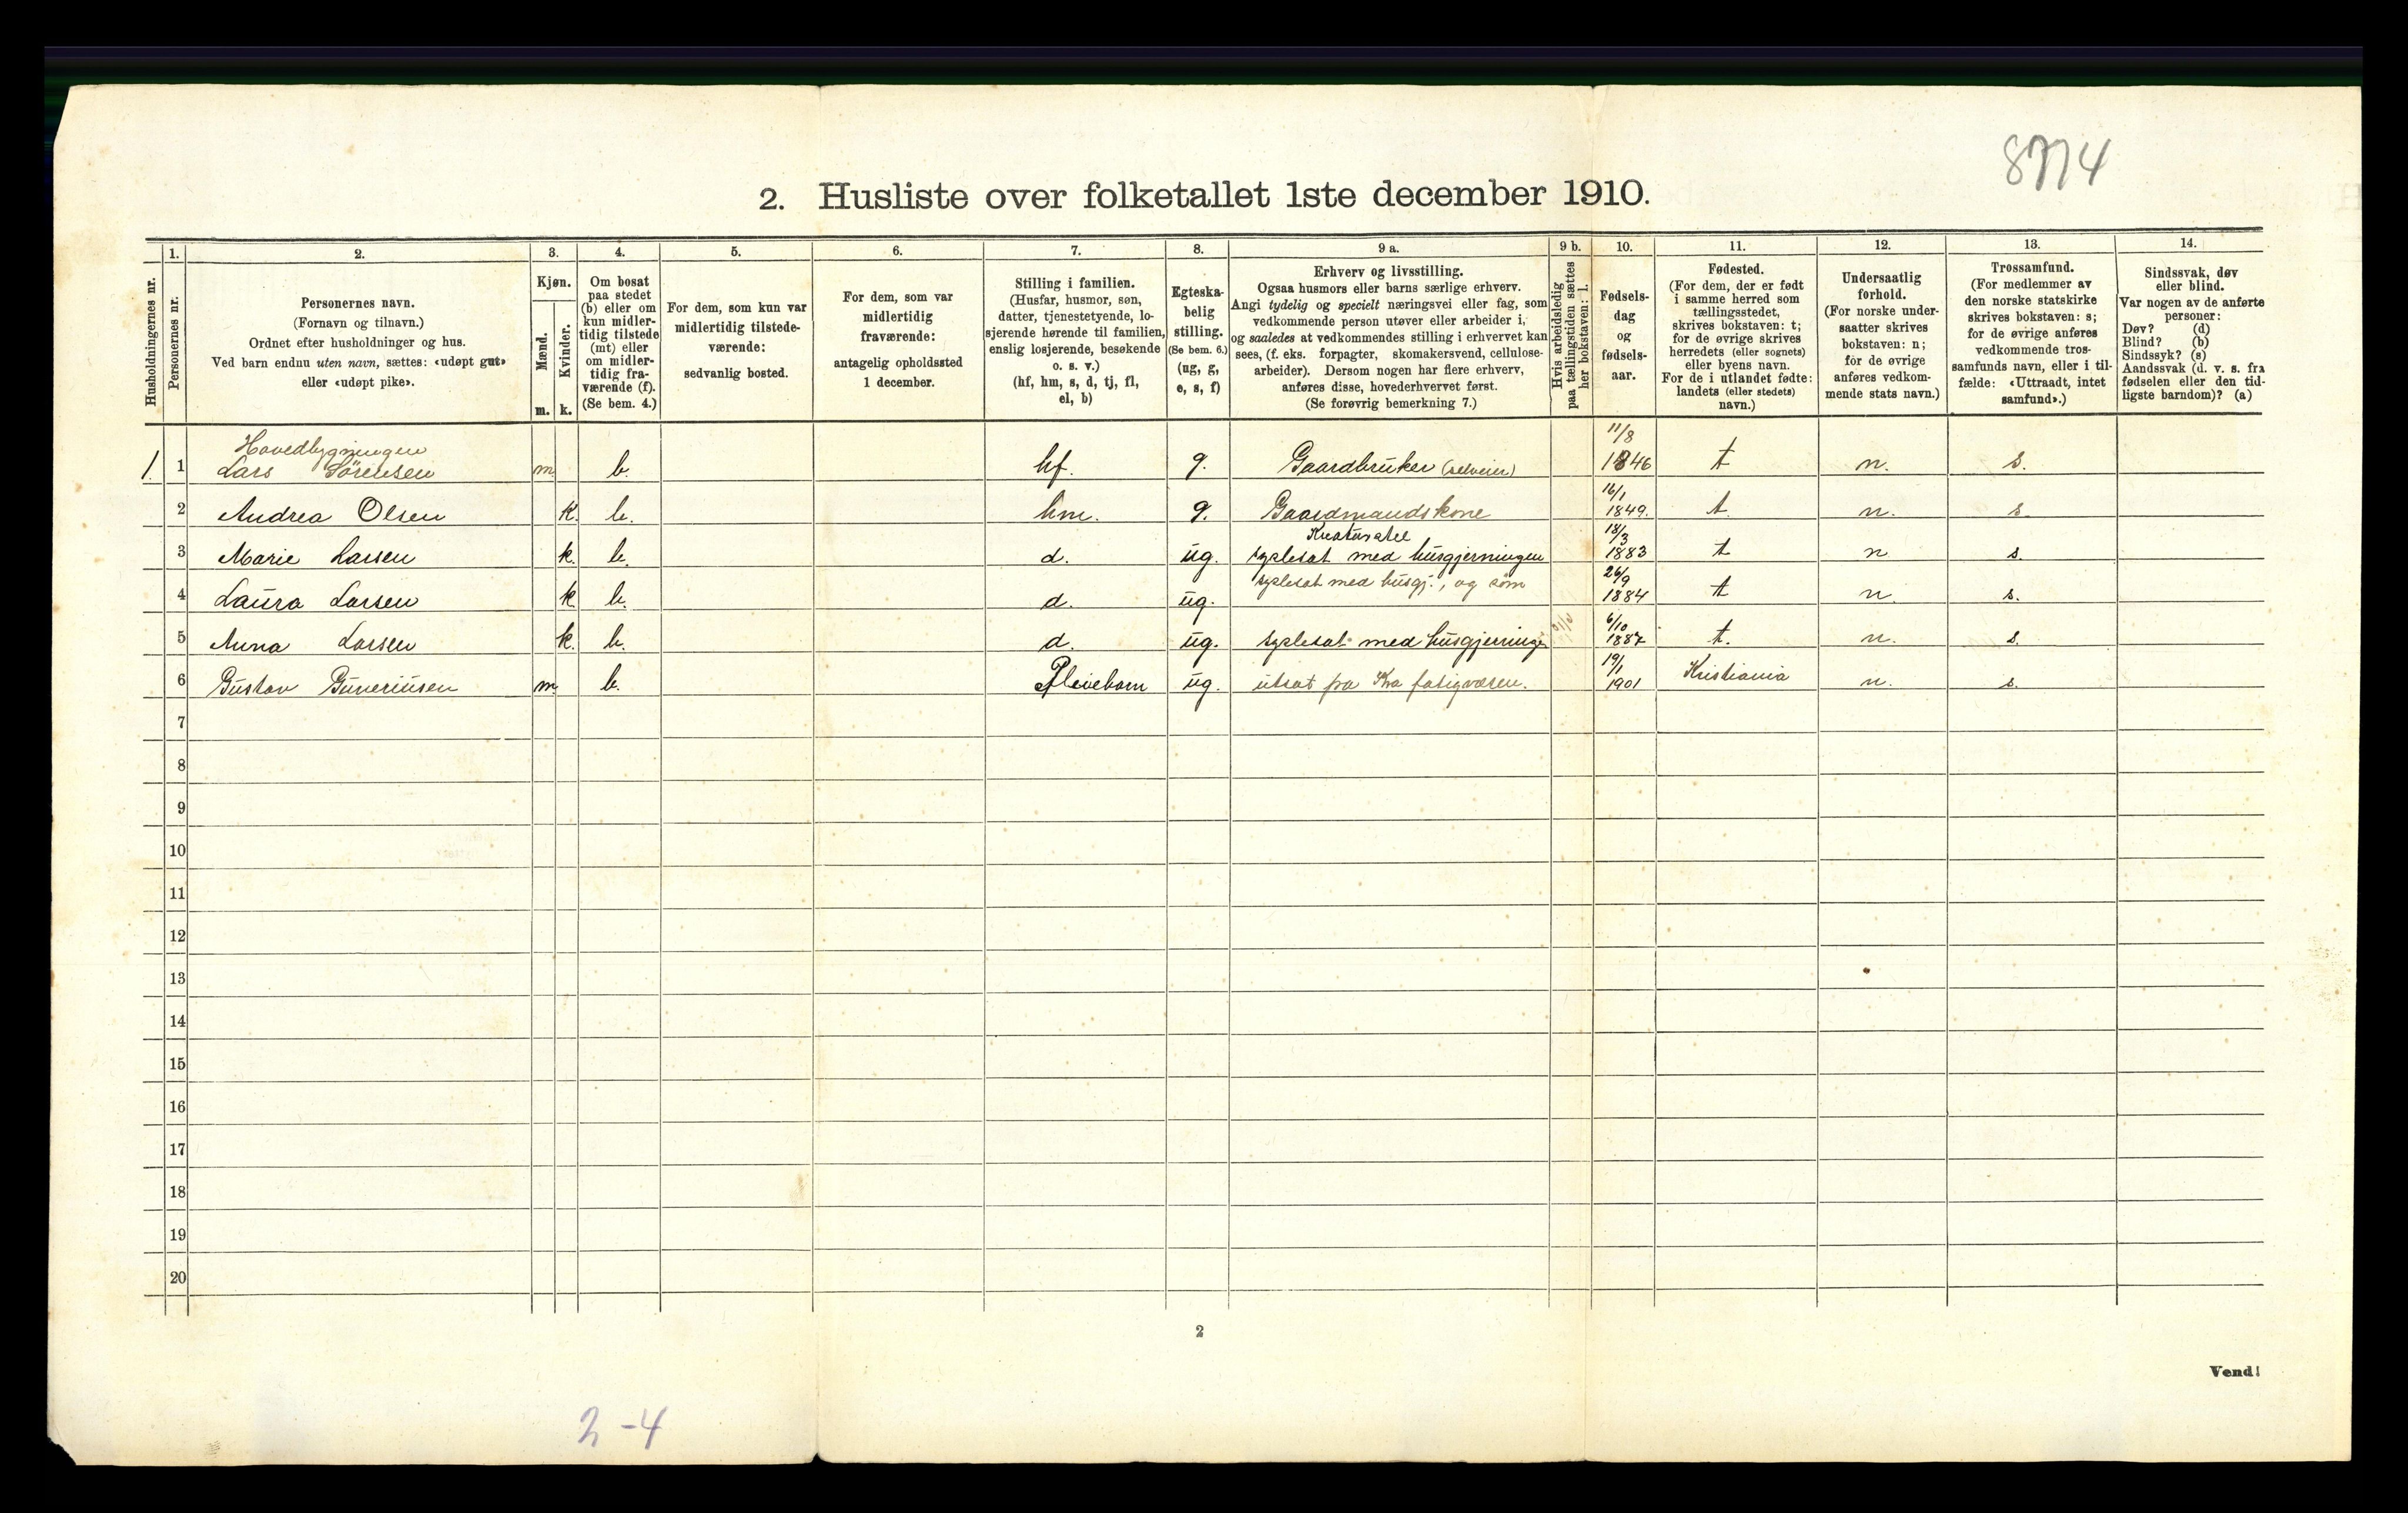 8774
2. Husliste over folketallet 1ste december 1910.
Husholdningernes nr.
1.
Personernes nr.
2.
Personernes navn.
(Fornavn og tilnavn.)
Ordnet efter husholdninger og hus.
Ved barn endnu uten navn, sættes: «udøpt gut»
eller «udøpt pike».
3.
Kjøn.
Mænd.
Kvinder.
m. k.
4.
Om bosat
paa stedet
(b) eller om
kun midler-
tidig tilstede
(mt) eller
om midler-
tidig fra-
værende (f).
(Se bem. 4.)
5.
For dem, som kun var
midlertidig tilstede-
værende:
sedvanlig bosted.
6.
For dem, som var
midlertidig
fraværende:
antagelig opholdssted
1 december.
7.
Stilling i familien.
(Husfar, husmor, søn,
datter, tjenestetyende, lo-
sjerende hørende til familien,
enslig losjerende, besøkende
o. s. v.)
(hf, hm, s, d, tj, fl,
el, b)
8.
Egteska-
belig
stilling.
(Se bem. 6.)
(ug, g,
e, s, f)
9 a.
Erhverv og livsstilling.
Ogsaa husmors eller barns særlige erhverv.
Angi tydelig og specielt næringsvei eller fag, som
vedkommende person utøver eller arbeider i,
og saaledes at vedkommendes stilling i erhvervet kan
sees, (f. eks. forpagter, skomakersvend, cellulose-
arbeider). Dersom nogen har flere erhverv,
anføres disse, hovederhvervet først.
(Se forøvrig bemerkning 7.)
9 b.
Hvis arbeidsledig
paa tællingstiden sættes
her bokstaven: l.
10.
Fødsels-
dag
og
fødsels-
aar.
11.
Fødested.
(For dem, der er født
i samme herred som
tællingsstedet,
skrives bokstaven: t;
for de øvrige skrives
herredets (eller sognets)
eller byens navn.
For de i utlandet fødte:
landets (eller stedets)
navn.)
12.
Undersaatlig
forhold.
(For norske under-
saatter skrives
bokstaven: n;
for de øvrige
anføres vedkom-
mende stats navn.)
13.
Trossamfund.
(For medlemmer av
den norske statskirke
skrives bokstaven: s;
for de øvrige anføres
vedkommende tros-
samfunds navn, eller i til-
fælde: «Uttraadt, intet
samfund».)
14.
Sindssvak, døv
eller blind.
Var nogen av de anførte
personer:
Døv? (d)
Blind? (b)
Sindssyk? (s)
Aandssvak (d. v. s. fra
fødselen eller den tid-
ligste barndom)? (a)
Hovedbygningen
1. 1 Lars Sörensen m b. hf. g. Gaardbruker (selveier) 11/8 1846 t n. s.
2 Andrea Olsen k. b. hm. g. Gaardmandskone 16/1 1849. t. n. s.
Kreaturstel
3 Marie Larsen k. b. d. ug. sysselsat med husgjerningen 18/3 1883 t n s.
4 Laura Larsen k b. d. ug. sysselsat med husgj., og som 26/9 1884 t n. s.
5 Anna Larsen k. b. d. ug. sysselsat med husgjerninge 6/10 1887 t. n. s.
6 Gustav Guneriusen m. b. Pleiebarn ug. utsat fra Kra fatigvæsen. 19/1 1901 Kristiania n. s.
7
8
9
10
11
12
13
14
15
16
17
18
19
20
2
Vend!
2-4